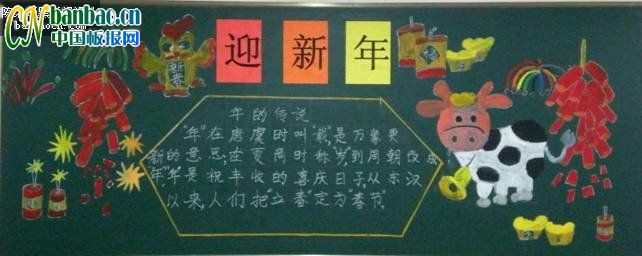 CN banbac.cn
中国板报网
迎新年
新春
年的传说
"年"在唐虞时叫"载",是万象更
新的意思,在夏商时称"岁"到周朝改成
年,"年"是祝丰收的喜庆日子,从东汉
以来,人们把"立春"定为"春节"